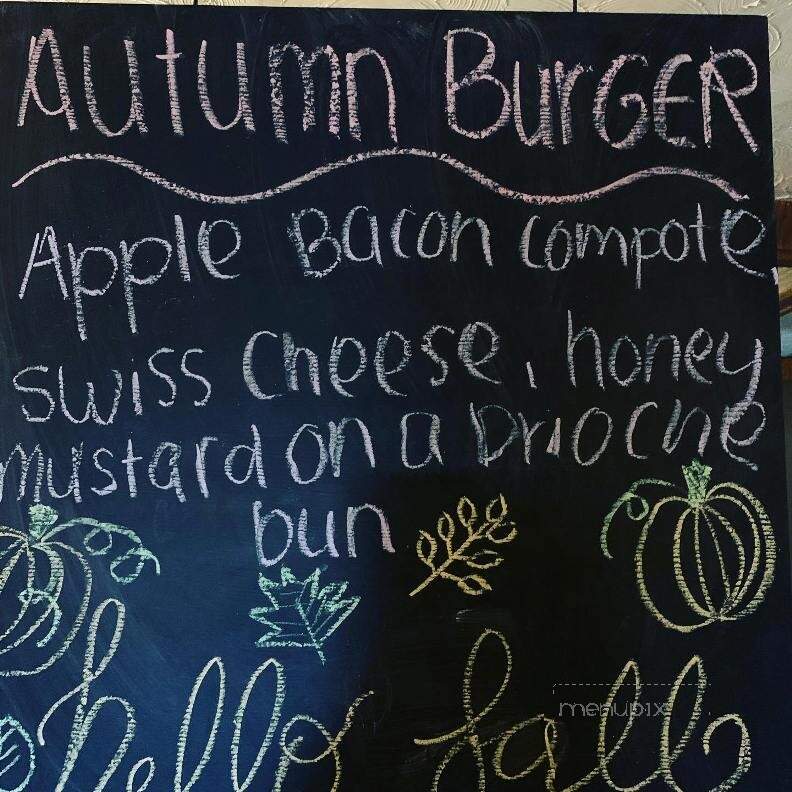 Autumn BurGER
Apple Bacon compote,
swiss cheese, honey
mustard on a brioche
bun
hello fall
menupix